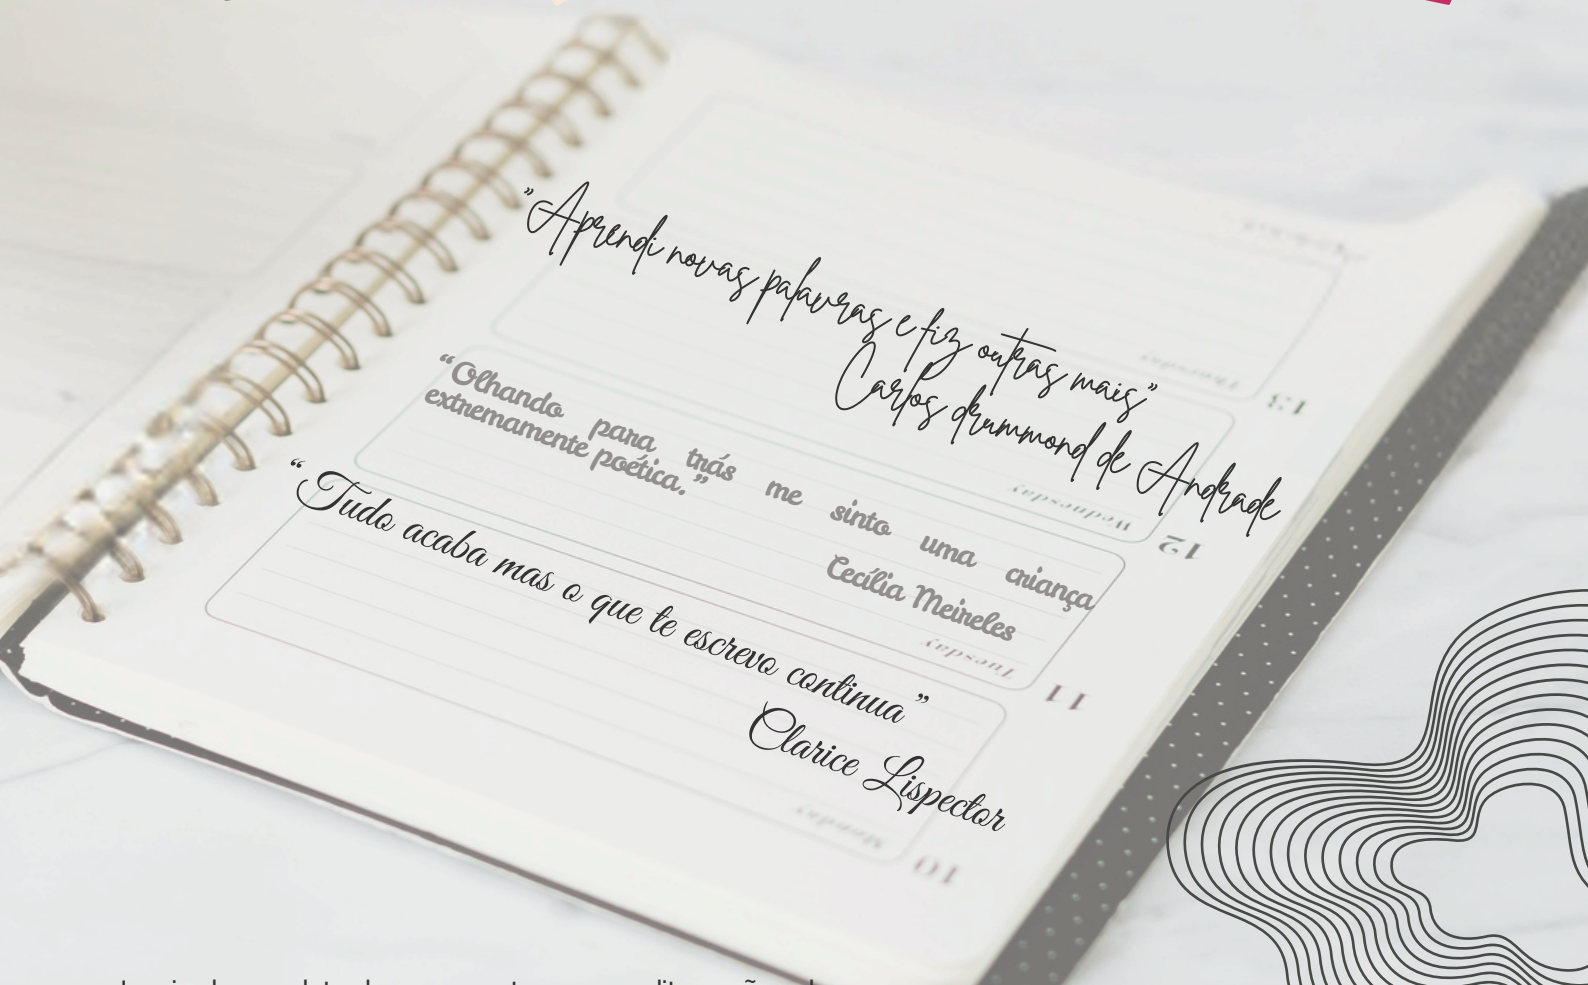 ”Aprendi novas palavras e fiz outras mais”
Carlos drummond de Andrade
“Olhando para trás me sinto uma criança
extremamente poética.”
Cecília Meireles
“Tudo acaba mas o que te escrevo continua”
Clarice Lispector
Thursday
13
Wednesday
12
Tuesday
11
Monday
10